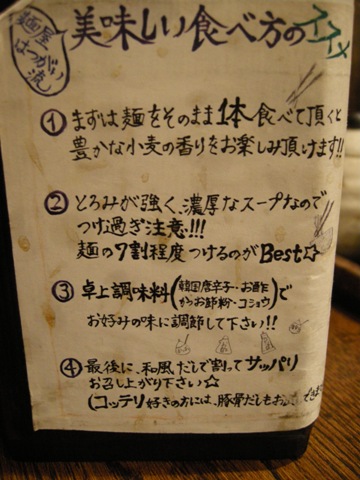 麺屋
はつがい
流
美味しい食べ方のススメ
①まずは麺をそのまま1本食べて頂くと
豊かな小麦の香りをお楽しみ頂けます!!
②とろみが強く、濃厚なスープなので
つけ過ぎ注意!!!
麺の7割程度つけるのがBest☆
③卓上調味料(韓国唐辛子・お酢
かつお節粉・コショウ)で
お好みの味に調節して下さい!!
④最後に、和風だしで割ってサッパリ
お召し上がり下さい☆
(コッテリ好きの方には、豚骨だしも